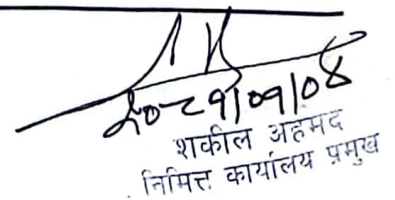 २०८१/०१/०४
शकील अहमद
निमित्त कार्यालय प्रमुख